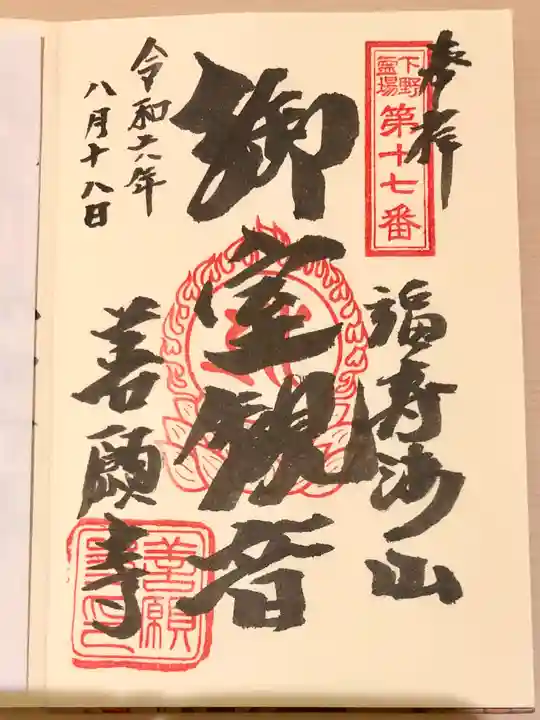 奉拝
下野
霊場
第十七番
福寿海山
御室観音
善願寺
善願
令和六年
八月十八日